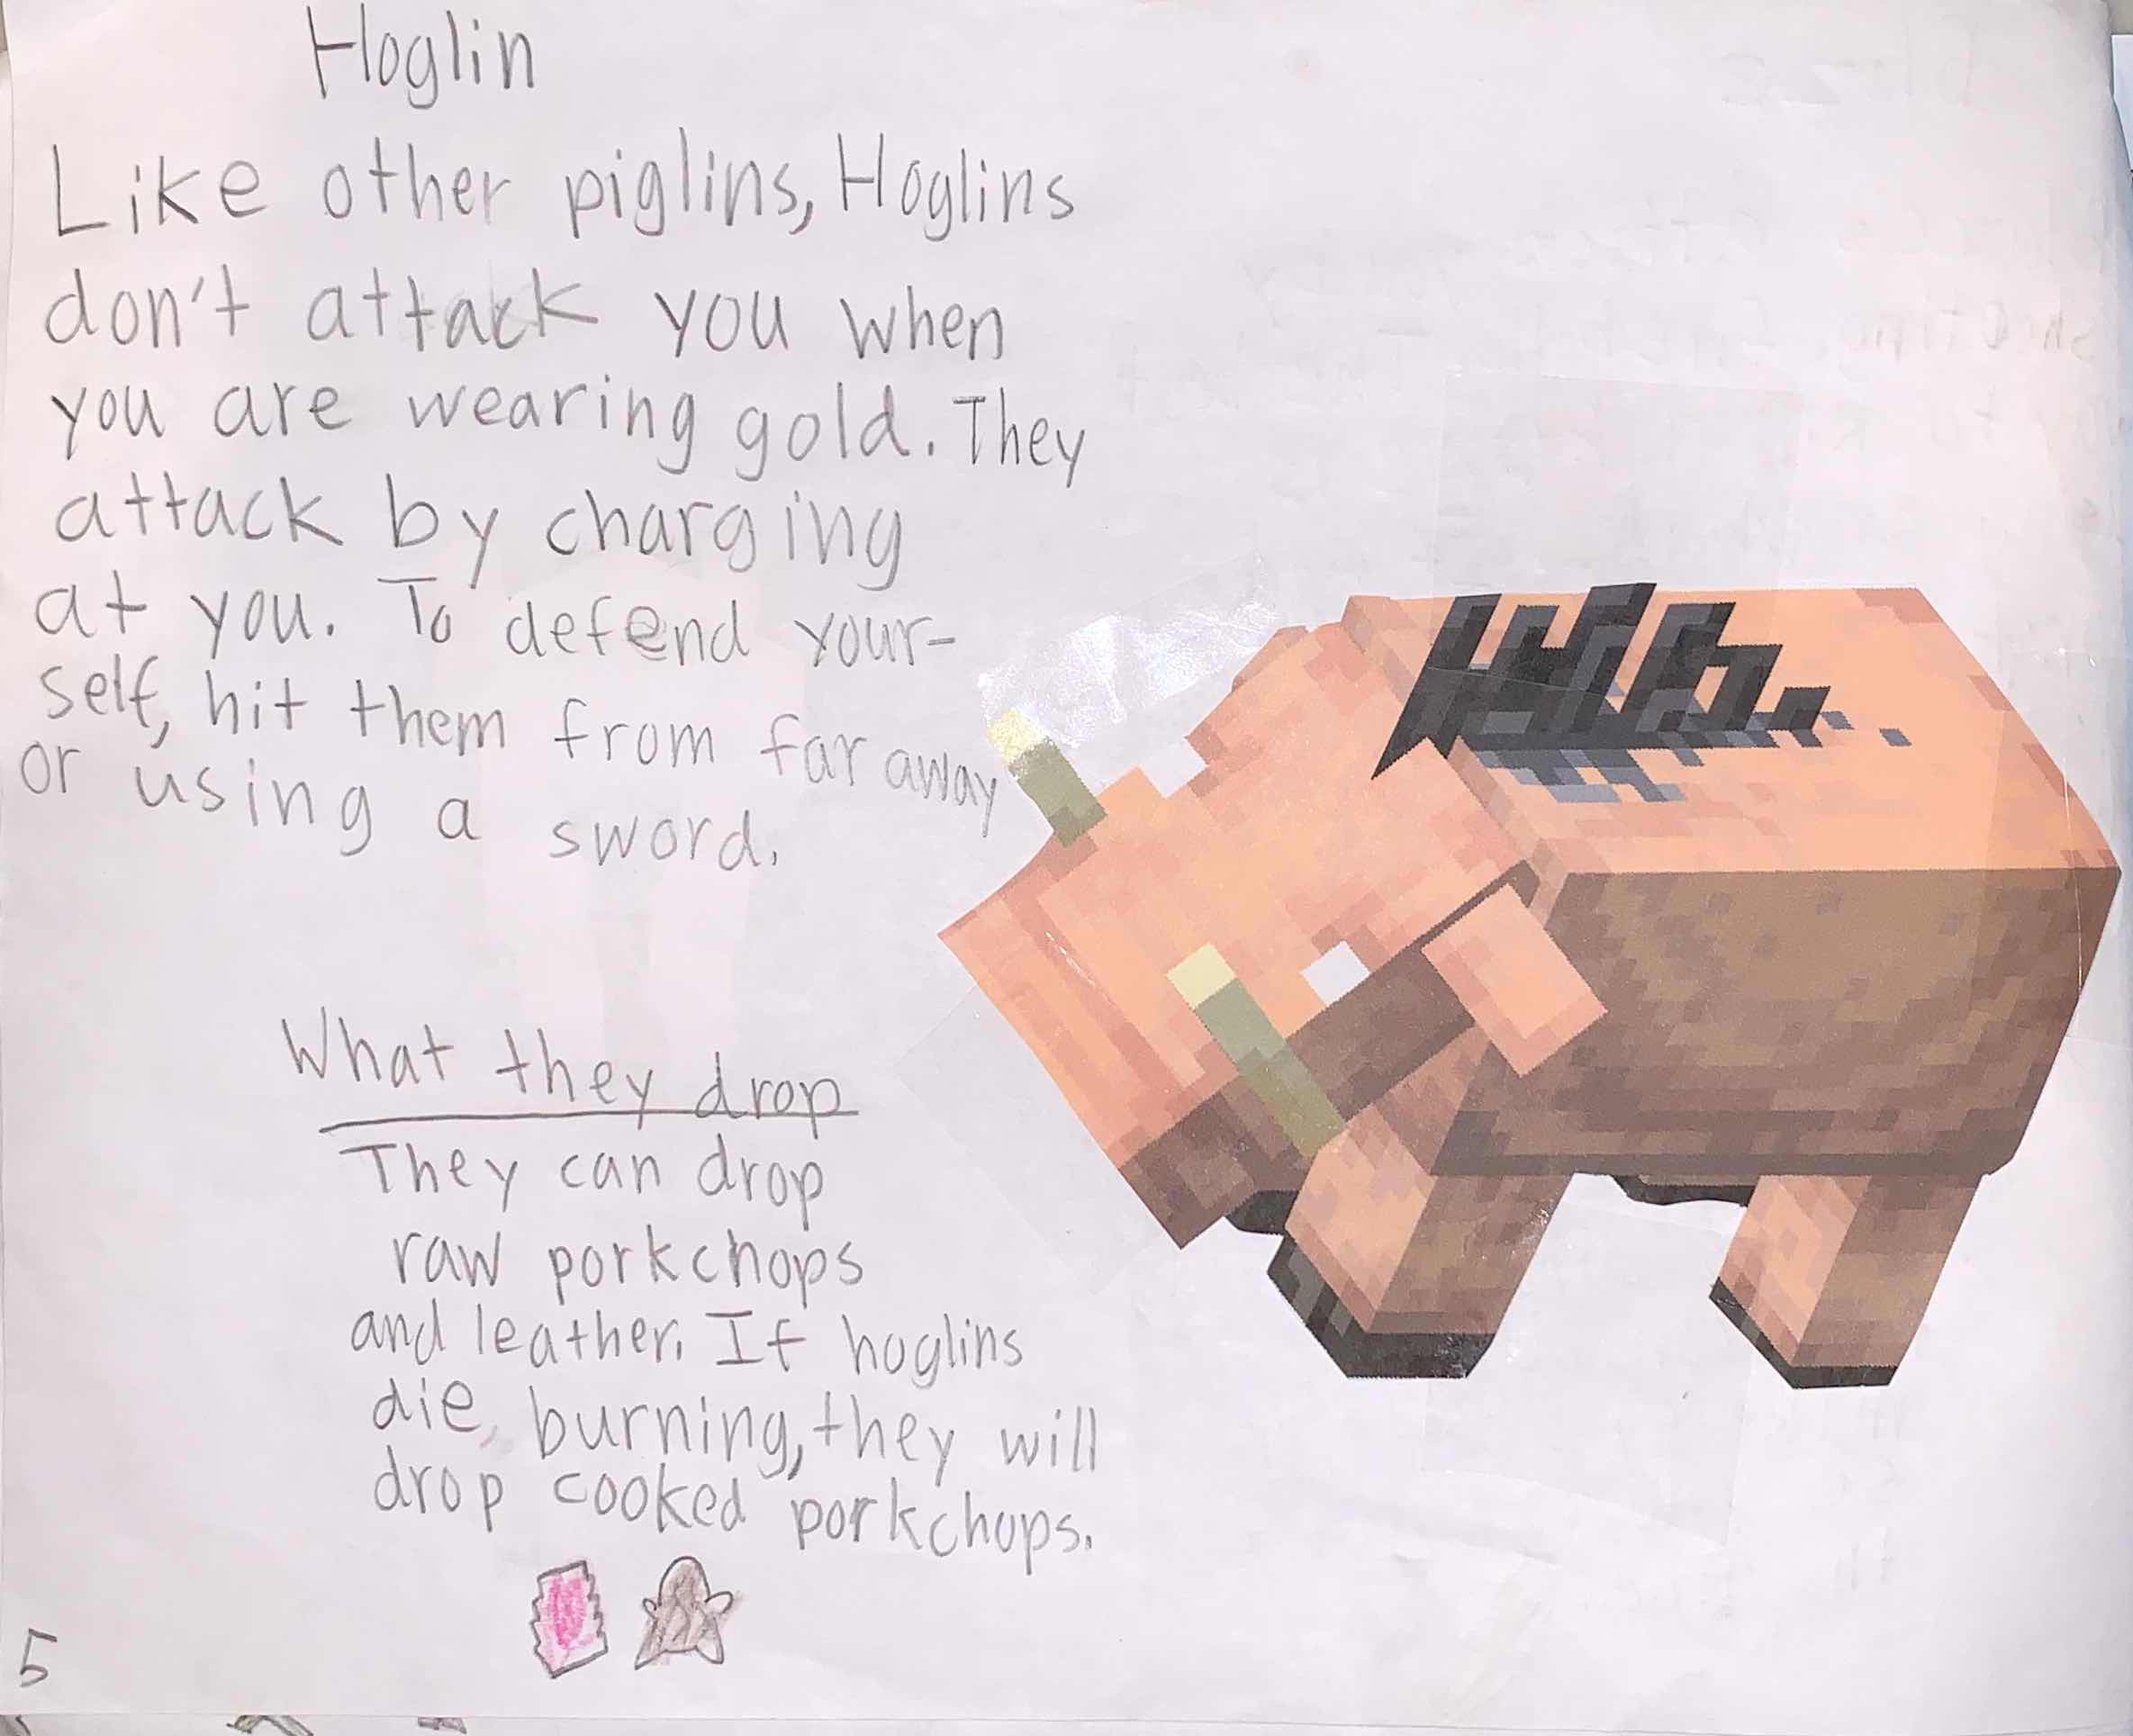 Hoglin
Like other piglins, Hoglins
don't attack you when
you are wearing gold. They
attack by charging
at you. To defend your-
self, hit them from far away
or using a sword.
What they drop
They can drop
raw porkchops
and leather. If hoglins
die, burning, they will
drop cooked porkchops.
5